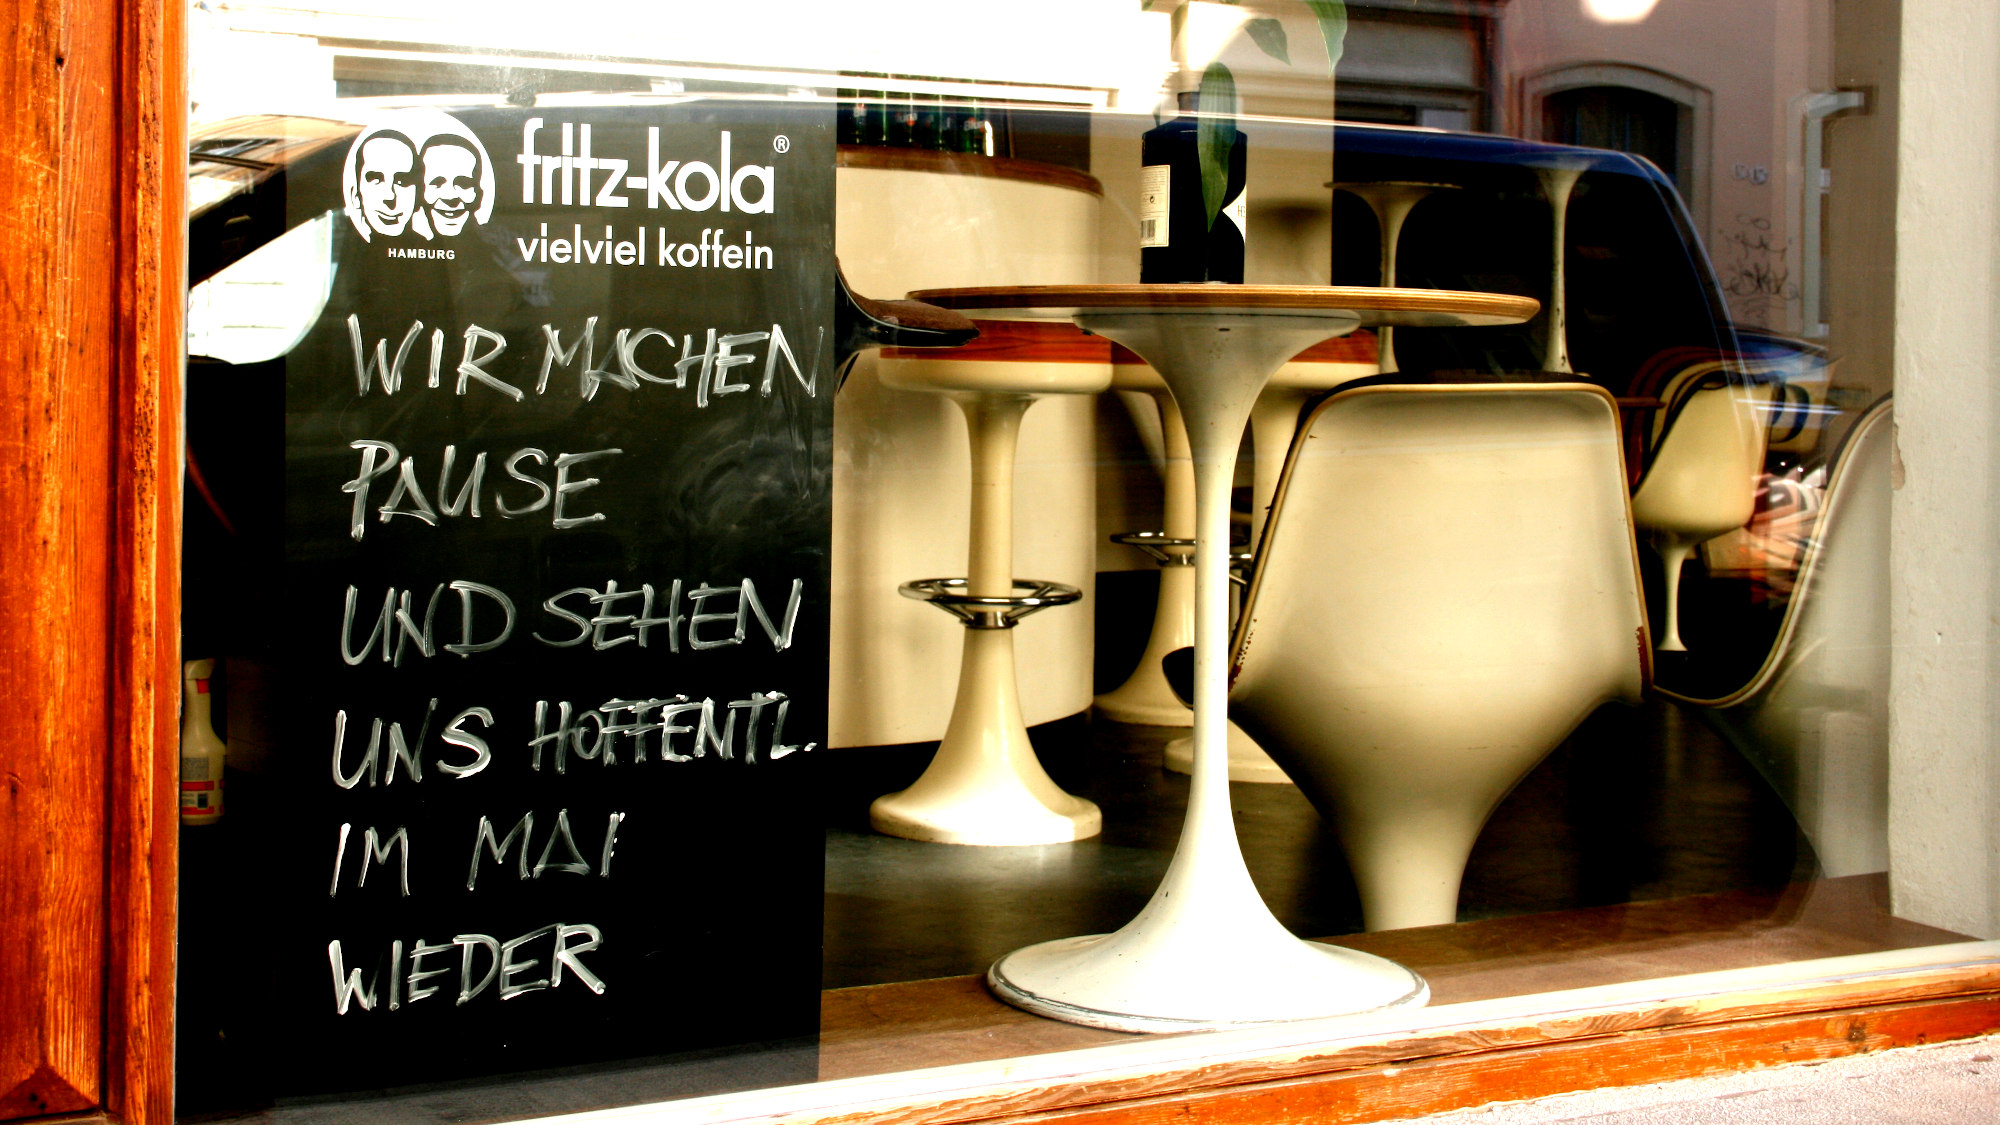 fritz-kola®
vielviel koffein
HAMBURG
WIR MACHEN
PAUSE
UND SEHEN
UNS HOFFENTL.
IM MAI
WIEDER